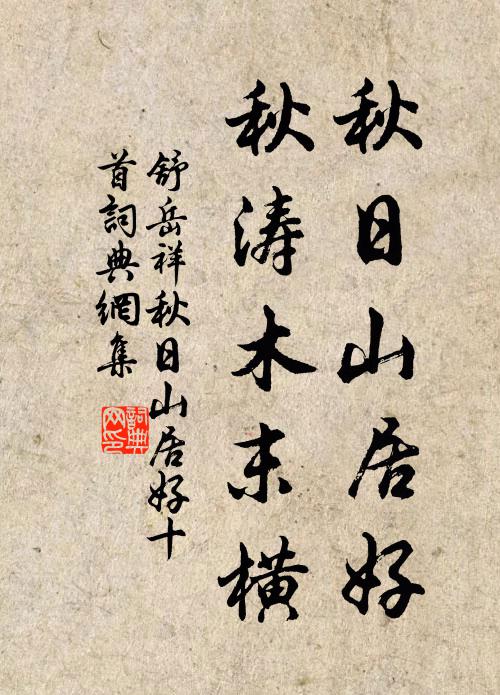 秋日山居好
秋涛木末橫
舒岳祥秋日山居好十
首詞典網集
詞典
网印